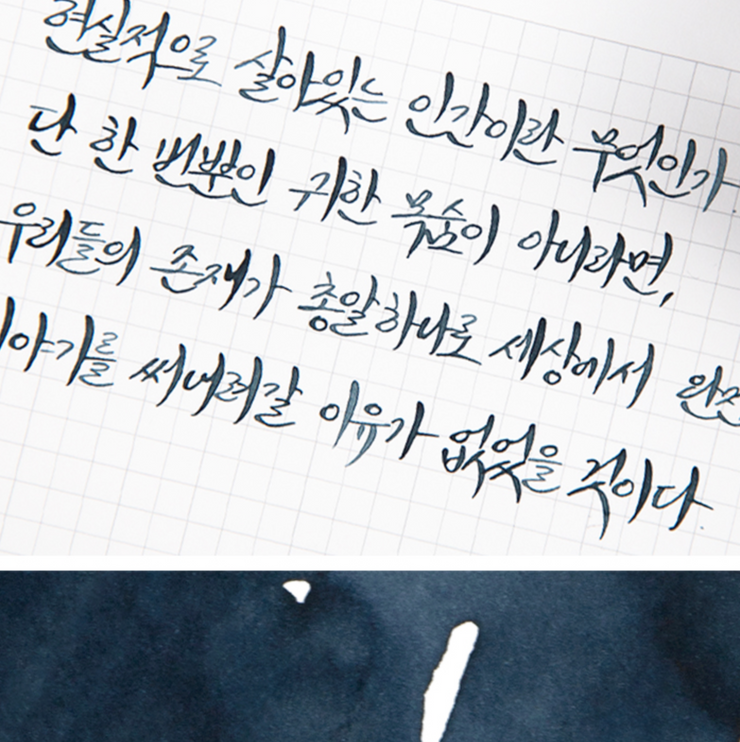 현실적으로 살아있는 인간이란 무엇인가.
단 한 번뿐인 귀한 목숨이 아니라면,
우리들의 존재가 총알 하나로 세상에서
이야기를 써내려갈 이유가 없었을 것이다.